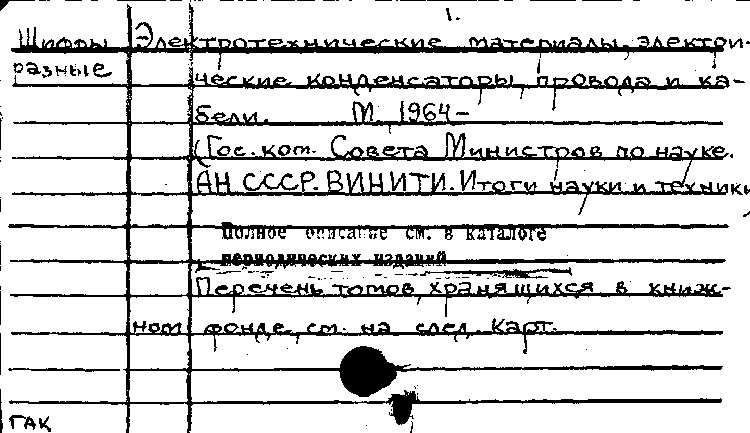 1.
Шифры Электротехнические материалы, электри-
разные ческие конденсаторы, провода и ка-
бели. М, 1964-
(Гос. ком. Совета Министров по науке.
АН СССР. ВИНИТИ. Итоги науки и техники
Полное описание см. в каталоге
периодических изданий
Перечень томов, хранящихся в книж-
ном фонде, см. на след. карт.
ГАК